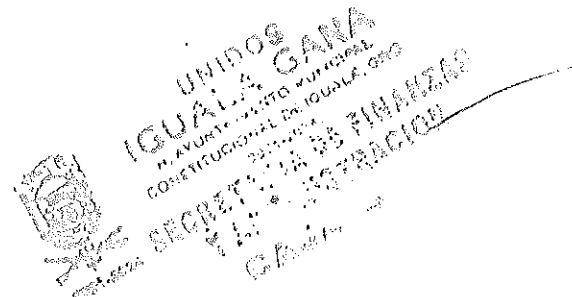 UNIDOS
IGUALA GANA
H. AYUNTAMIENTO MUNICIPAL
CONSTITUCIONAL DE IGUALA, GRO
SECRETARIA DE FINANZAS
Y ADMINISTRACION